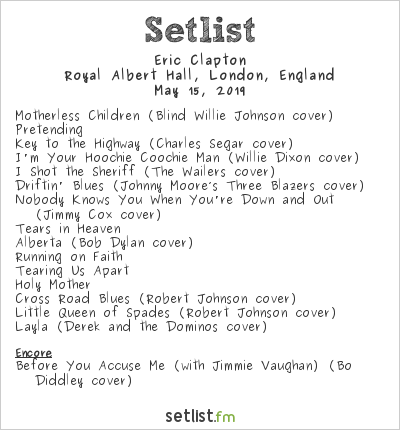 Setlist
Eric Clapton
Royal Albert Hall, London, England
May 15, 2019
Motherless Children (Blind Willie Johnson cover)
Pretending
Key to the Highway (Charles Segar cover)
I'm Your Hoochie Coochie Man (Willie Dixon cover)
I Shot the Sheriff (The Wailers cover)
Driftin' Blues (Johnny Moore's Three Blazers cover)
Nobody Knows You When You're Down and Out
(Jimmy Cox cover)
Tears in Heaven
Alberta (Bob Dylan cover)
Running on Faith
Tearing Us Apart
Holy Mother
Cross Road Blues (Robert Johnson cover)
Little Queen of Spades (Robert Johnson cover)
Layla (Derek and the Dominos cover)
Encore
Before You Accuse Me (with Jimmie Vaughan) (Bo
Diddley cover)
setlist.fm